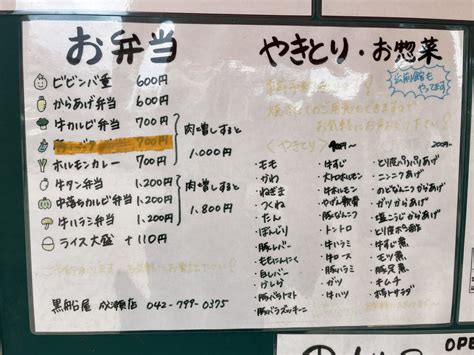 お弁当
ビビンバ重 600円
からあげ弁当 600円
牛カルビ弁当 700円
700円
ホルモンカレー 700円
肉増しすると
1.000円
牛タン弁当 1.200円
中落ちカルビ弁当 1.200円
牛ハラミ弁当 1.200円
肉増しすると
1.800円
ライス大盛 +110円
黒船屋 成瀬店 042-799-0375
やきとり・お惣菜
公前館も
やってます
くやきとり〉
もも
かわ
ねぎま
つくね
たん
ぼんじり
豚レバー
ももにんにく
白レバー
豚バラトマト
豚バラズッキーニ
牛すじ
大トロホルモン
牛ホルモン
やげん軟骨
豚なんこつ
トントロ
牛ハラミ
牛ロース
豚ハラミ
ガツ
牛ハツ
200円〜
とり皮パリパリあげ
ニンニクあげ
のどなんこつあげ
ガツからあげ
塩こうじからあげ
とり皮ポン酢
牛すじ煮
モツ煮
豚足煮
キムチ
ポテトサラダ
OPE